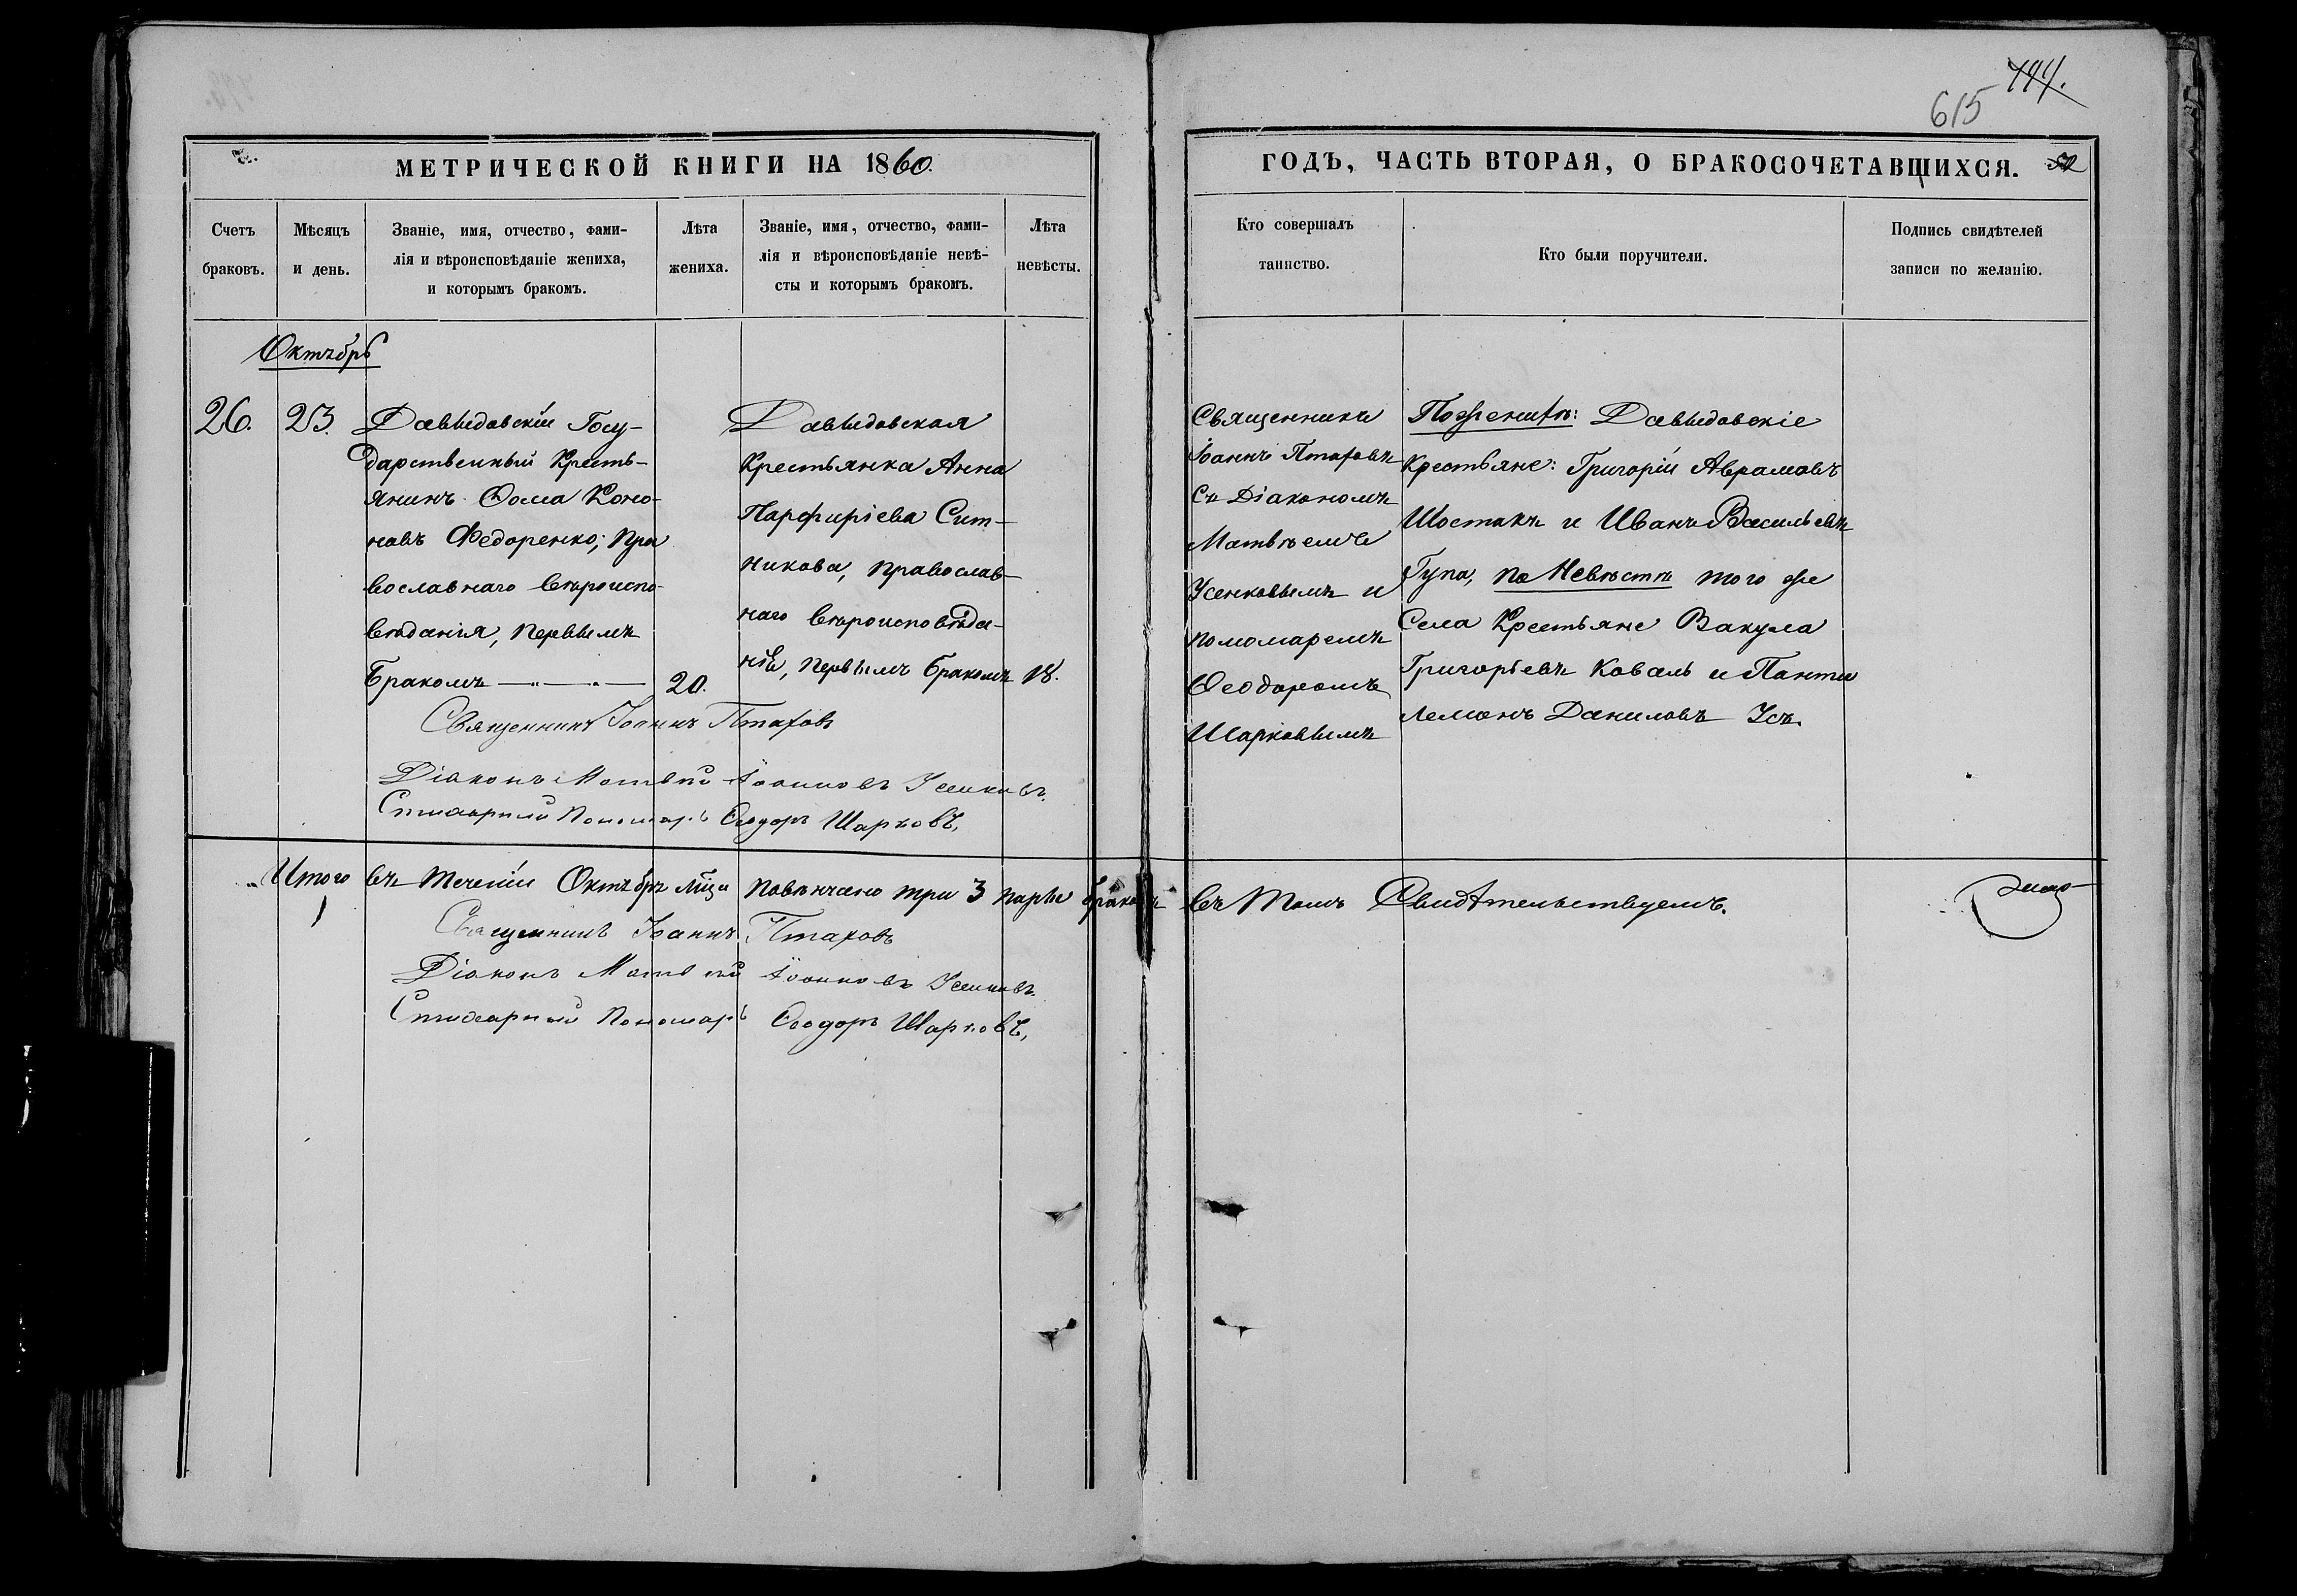 615
МЕТРИЧЕСКОЙ КНИГИ НА 1860.
ГОДЪ, ЧАСТЬ ВТОРАЯ, О БРАКОСОЧЕТАВШИХСЯ.
Счетъ
браковъ.
Мѣсяцъ
и день.
Званіе, имя, отчество, фами-
лія и вѣроисповѣданіе жениха,
и которымъ бракомъ.
Лѣта
жениха.
Званіе, имя, отчество, фами-
лія и вѣроисповѣданіе невѣ-
сты и которымъ бракомъ.
Лѣта
невѣсты.
Кто совершалъ
таинство.
Кто были поручители.
Подпись свидѣтелей
записи по желанію.
Октябрь
26.
23.
Давыдовскій Госу-
дарственный Кресть-
янинъ Ѳома Коно-
новъ Федоренко, Пра
вославнаго вѣроиспо-
вѣданія, первымъ
бракомъ
20.
Давыдовская
Крестьянка Анна
Парфиріева Сит-
никова, православ-
наго вѣроисповѣда-
нія, первымъ бракомъ
18.
Священникъ
Іоаннъ Птаховъ
съ Діакономъ
Матвѣемъ
Усенковымъ и
пономаремъ
Ѳеодоромъ
Шарковымъ
По женихѣ: Давыдовскіе
Крестьяне: Григорій Аврамовъ
Шостакъ и Иванъ Васильевъ
Гупа, по Невѣстѣ того же
Села Крестьяне Вакула
Григорьевъ Коваль и Панте
лемонъ Даниловъ Усъ.
Священникъ Іоаннъ Птаховъ
Діаконъ Матвѣй Іоанновъ Усенковъ.
Стихарный Пономарь Ѳеодоръ Шарковъ,
Итого въ теченіи Октябрѣ мѣца повѣнчано три 3 пары браковъ въ томъ Свидѣтельствуемъ.
Священникъ Іоаннъ Птаховъ
Діаконъ Матвѣй Іоанновъ Усенковъ.
Стихарный Пономарь Ѳеодоръ Шарковъ,